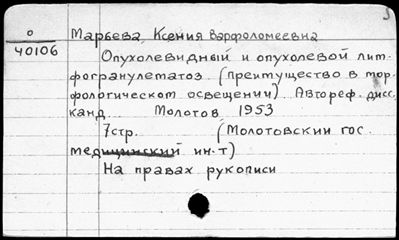 О
40106
Марьева, Ксения Варфоломеевна
Опухолевидный и опухолевой лим-
фогранулематоз (преимущество в мор-
фологическом освещении). Автореф. дисс.
канд. Молотов 1953
7стр. (Молотовский гос.
медицинский ин-т)
На правах рукописи